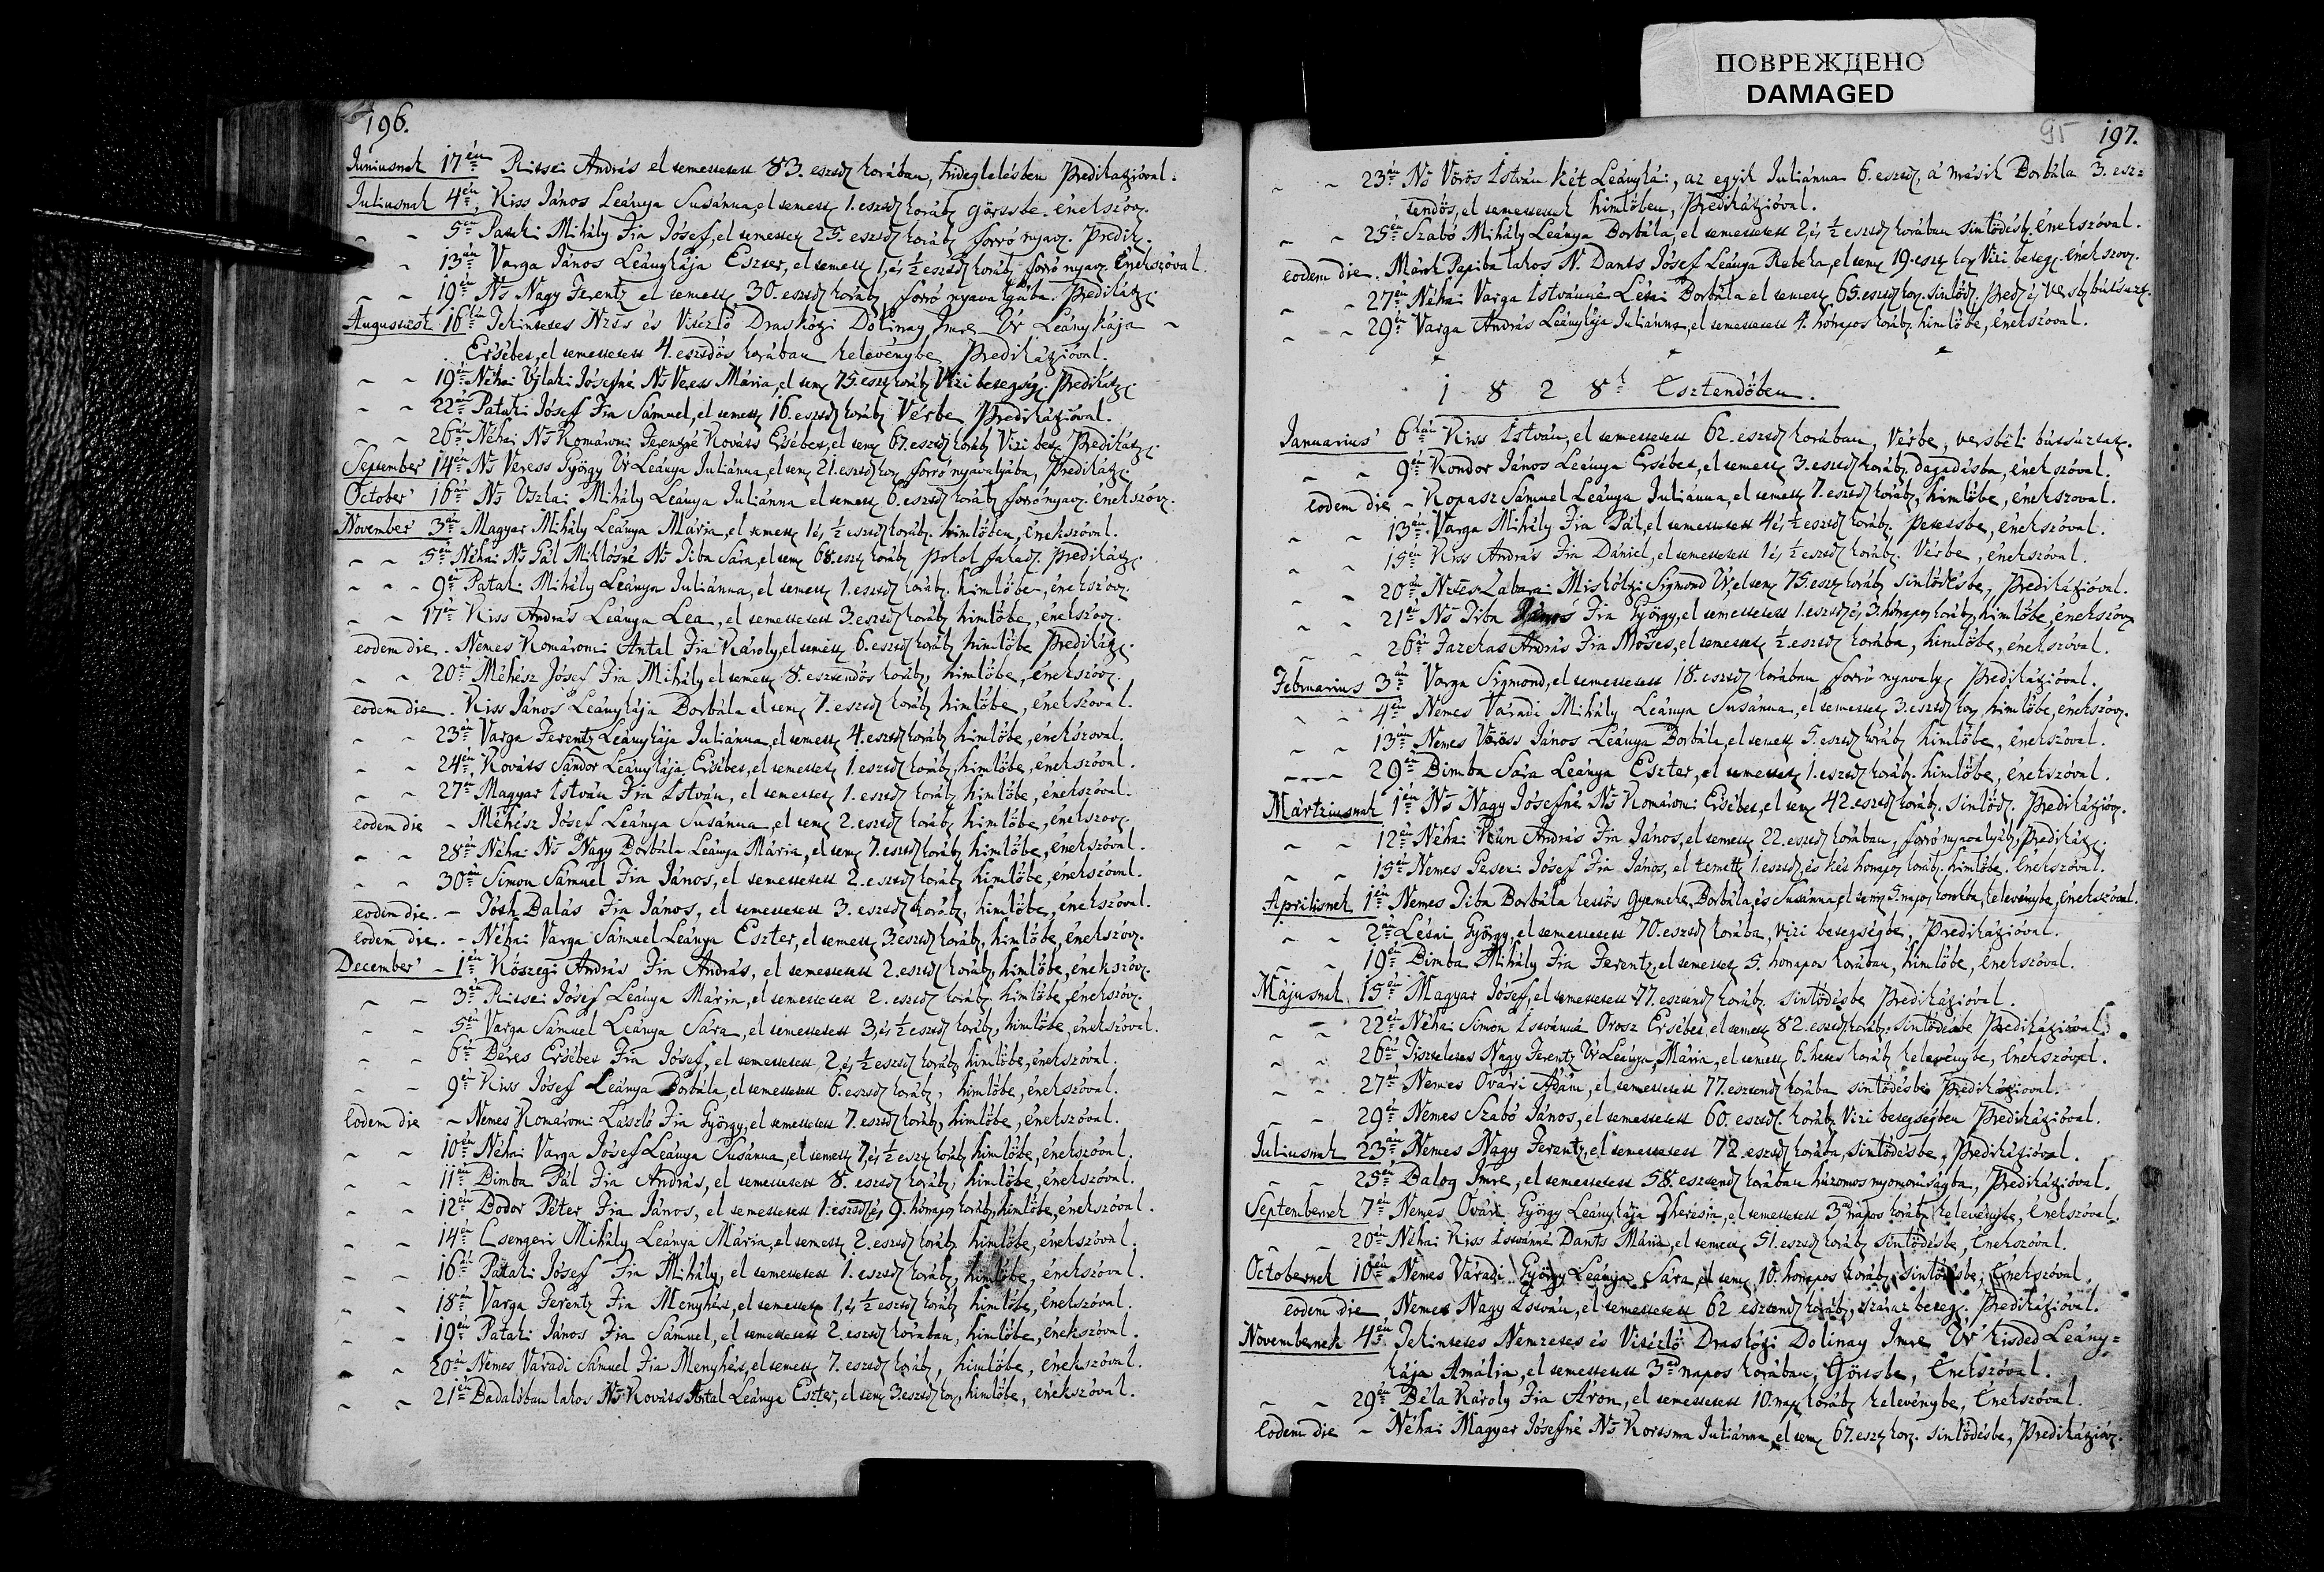 ПОВРЕЖДЕНО
DAMAGED
196.
Juniusnak 17én Ritsei András el temettetett 83. esztd korában, hideglelésben Predikatzióval.
Juliusnak 4én Kiss János Leánya Susánna, el temett. 1. esztd koráb görtsbe. énekszóv.
5én Pataki Mihály Fia Jósef, el temettet 25. esztd koráb forró nyav. Predik.
13án Varga János Leánykája Eszter, el temett 1, és ½ esztd koráb forró nyav. Énekszóval.
19én Ns Nagy Ferentz el temett. 30. esztd koráb forró nyavalyába. Predikátz.
Augustust. 16án Tekintetes Nzts és Vitézlő Draskózi Dolinay Imre Úr Leánykája
Ersébet, el temettetett 4. esztdős korában kelevénybe Predikátzióval.
19én Néhai Ujlaki Jósefné Ns Veress Mária, el tem 75. eszt koráb Vizi betegség. Predikátz.
22én Pataki Jósef Fia Sámuel, el temett 16. esztd koráb Vérbe Predikátzióval.
26án Néhai Ns Komáromi Ferentzné Kováts Ersébet, el tem 67. esztd koráb Vizi bet Predikátz.
September 14én Ns Veress György Úr Leánya Juliánna, el tem 21. esztd kor forró nyavalyába, Predikátz.
October 16án Ns Uszkai Mihály Leánya Juliánna el temett 6. esztd koráb forró nyav. énekszóv.
November 3án Magyar Mihály Leánya Mária, el temett 1 és ½ esztd koráb. himlőben, Énekszóval.
5én Néhai Ns Gál Miklósné Ns Tiba Sára, el tem 68. eszt koráb pokol fakad. Predikátz.
9én Pataki Mihály Leánya Juliánna, el temett 1. esztd koráb. himlőbe, énekszóv.
17én Kiss András Leánya Lea, el temettetett 3. esztd koráb himlőbe, énekszóv.
eodem die. Nemes Komáromi Antal Fia Károly, el temett 6. esztd koráb himlőbe Predikátz.
20án Méhész Jósef Fia Mihály el temett 8. esztendős koráb, himlőbe, énekszóv.
eodem die. Kiss János Leánykája Borbála el tem 7. esztd koráb himlőbe, énekszóval.
23án Varga Ferentz Leánykája Juliánna, el temett 4. esztd koráb himlőbe, énekszóval.
24én Kováts Sándor Leánykája Ersébet, el temettet 1. esztd koráb, himlőbe, énekszóval.
27én Magyar István Fia István, el temettet 1. esztd koráb himlőbe, énekszóval.
eodem die – Méhész Jósef Leánya Susánna, el tem 2. esztd koráb himlőbe, énekszóv.
28án Néhai Ns Nagy Borbála Leánya Mária, el tem 7. esztd koráb himlőbe, énekszóval.
30án Simon Sámuel Fia János, el temettetett 2. esztd koráb himlőbe, énekszóval.
eodem die. – Tóth Balás Fia János, el temettetett 3. esztd koráb, himlőbe, énekszóval.
eodem die. – Néhai Varga Sámuel Leánya Eszter, el temett 3. esztd koráb, himlőbe, énekszóv.
December – 1én Köszegi András Fia András, el temettetett 2. esztd koráb, himlőbe, énekszóv.
3án Ritsei Jósef Leánya Mária, el temettetett 2. esztd koráb. himlőbe, énekszóv.
5én Varga Sámuel Leánya Sára, el temettetett 3, és ½ esztd koráb, himlőbe, énekszóval.
6án Béres Ersébet Fia Jósef, el temettetett 2, és ½ esztd koráb himlőbe, énekszóval.
9én Kiss Jósef Leánya Borbála, el temettetett 6. esztd koráb, himlőbe, énekszóval.
Eodem die – Nemes Komáromi László Fia György, el temettetett 7. esztd koráb, himlőbe, énekszóval.
10én Néhai Varga Jósef Leánya Susánna, el temett 7, és ½ eszt koráb himlőbe, énekszóval.
11én Bimba Pál Fia András, el temettetett 8. esztd koráb, himlőbe, énekszóval.
12én Bodor Péter Fia János, el temettetett 1. esztd és 9. hónapos koráb, himlőbe, énekszóval.
14én Csengeri Mihály Leánya Mária, el temett 2. esztd koráb. himlőbe, énekszóval.
16án Pataki Jósef Fia Mihály, el temettetett 1. esztd koráb, himlőbe, énekszóval.
18án Varga Ferentz Fia Menyhért, el temettet 1, és ½ esztd koráb himlőbe, Énekszóval.
19én Pataki János Fia Sámuel, el temettetett 2. esztd korában, himlőbe, énekszóval.
20án Nemes Váradi Sámuel Fia Menyhért, el temett 7. esztd koráb, himlőbe, énekszóval.
21én Badalóban lakos Ns Kováts Antal Leánya Eszter, el tem 3. esztd kor, himlőbe, énekszóval.
95 197.
23án Ns Vörös István két Leánykái, az egyik Juliánna 6. esztd. a másik Borbála 3. esz=
tendős, el temettettek himlőben, Predikátzióval.
25én Szabó Mihály Leánya Borbála, el temettetett 2, és ½ esztd korában sintődésb, Énekszóval.
eodem die. Márok Papiba lakos N. Dants Jósef Leánya Rebeka, el tem 19. eszt kor Vizi beteg. énekszóv.
27én Néhai Varga Istvánné Lésai Borbála el temett 65. esztd kor. sintőd. Pred és versb bútsuzt.
29én Varga András Leánykája Juliánna, el temettetett 4. hónapos koráb. himlőbe, énekszóval.
1 8 2 8k Esztendőben.
Januarius 6kán Kiss István, el temettetett 62. esztd korában, Vérbe, versbéli bútsúztat.
9én Kondor János Leánya Ersébet, el temett 3. esztd koráb. dagadásba, énekszóval.
eodem die – Kopasz Sámuel Leánya Juliánna, el temett 7. esztd koráb, himlőbe, énekszóval.
13án Varga Mihály Fia Pál, el temettetett 4 és ½ esztd koráb. petetsbe, énekszóval.
15én Kiss András Fia Dániel, el temettetett 1 és ½ esztd koráb. Vérbe, énekszóval.
20án Nztes Zabari Miskóltzi Sigmond Úr, el tem 75. eszt koráb sintődésbe, Predikátzióval.
21én Ns Tiba János Fia György, el temettetett 1. esztd és 3. hónapos koráb himlőbe, énekszóv
26án Fazekas András Fia Móses, el temettett ½ esztd korába, himlőbe, énekszóval.
Februarius 3án Varga Sigmond, el temettetett 18. esztd korában forró nyavaly Predikátzióval.
4én Nemes Váradi Mihály Leánya Susánna, el temettet 3. esztd kor himlőbe, énekszóv.
13án Nemes Vöröss János Leánya Borbála, el temett 5. esztd koráb himlőbe, énekszóval.
29én Bimba Sára Leánya Eszter, el temettet 1. esztd koráb. himlőbe, énekszóval.
Mártziusnak 1én Ns Nagy Jósefné Ns Komáromi Ersébet, el tem 42. esztd koráb. sintőd. Predikátzióv.
12én Néhai Kún András Fia János, el temett 22. esztd korában, forró nyavalyáb, Predikátz.
15én Nemes Peseri Jósef Fia János, el temett 1. esztd, és két hónapos koráb. himlőbe. Énekszóval.
Aprilisnek 1én Nemes Tiba Borbála kettős Gyermeke, Borbála, és Susánna, el tem 5. napos korokba, kelevénybe, Énekszóval.
2án Lésai György, el temettetett 70. esztd korába, vizi betegségbe, Predikátzióval.
19én Bimba Mihály Fia Ferentz, el temettet 5. hónapos korában, himlőbe, Énekszóval.
Májusnak 15én Magyar Jósef, el temettetett 77. esztend koráb sintődésbe Predikátzióval.
22én Néhai Simon Istvánné Orosz Ersébet, el temett 82. esztd koráb, sintődésbe Predikátzióval.
26án Tiszteletes Nagy Ferentz Úr Leánya, Mária, el temett 6. hetes koráb kelevénybe, Énekszóval.
27én Nemes Ovári Ádám, el temettetett 77. esztend korába sintődésbe Predikátzióval.
29én Nemes Szabó János, el temettetett 60. esztd. koráb Vizi betegségben Predikátzióval.
Juliusnak 23án Nemes Nagy Ferentz, el temettetett 72. esztd korába, sintődésbe, Predikátzióval.
25én Balog Imre, el temettetett 58. esztend korában húzomos nyomorúságba, Predikátzióval.
Septembernek 7én Nemes Ovári György Leánykája Theresia, el temettetett 3 napos korába kelevénybe, Énekszóval.
20án Néhai Kiss Istvánné Dants Mária, el temett 51. esztd koráb sintődésbe, Énekszóval.
Octobernek 10én Nemes Váradi György Leánya Sára, el tem 10. hónapos koráb sintődésbe, Énekszóval.
eodem die Nemes Nagy István, el temettetett 62 esztend koráb, száraz beteg. Predikátzióval.
Novembernek 4én Tekintetes Nemzetes és Vitézlő Draskózi Dolinay Imre Úr kisded Leány=
kája Amália, el temettetett 3ad napos korában, Görtsbe, Énekszóval.
29én Béla Károly Fia Áron, el temettetett 10. nap koráb kelevénybe, Énekszóval.
Eodem die – Néhai Magyar Jósefné Ns Kortsma Juliánna, el tem 67. eszt kor. sintődésbe, Predikátzióv.